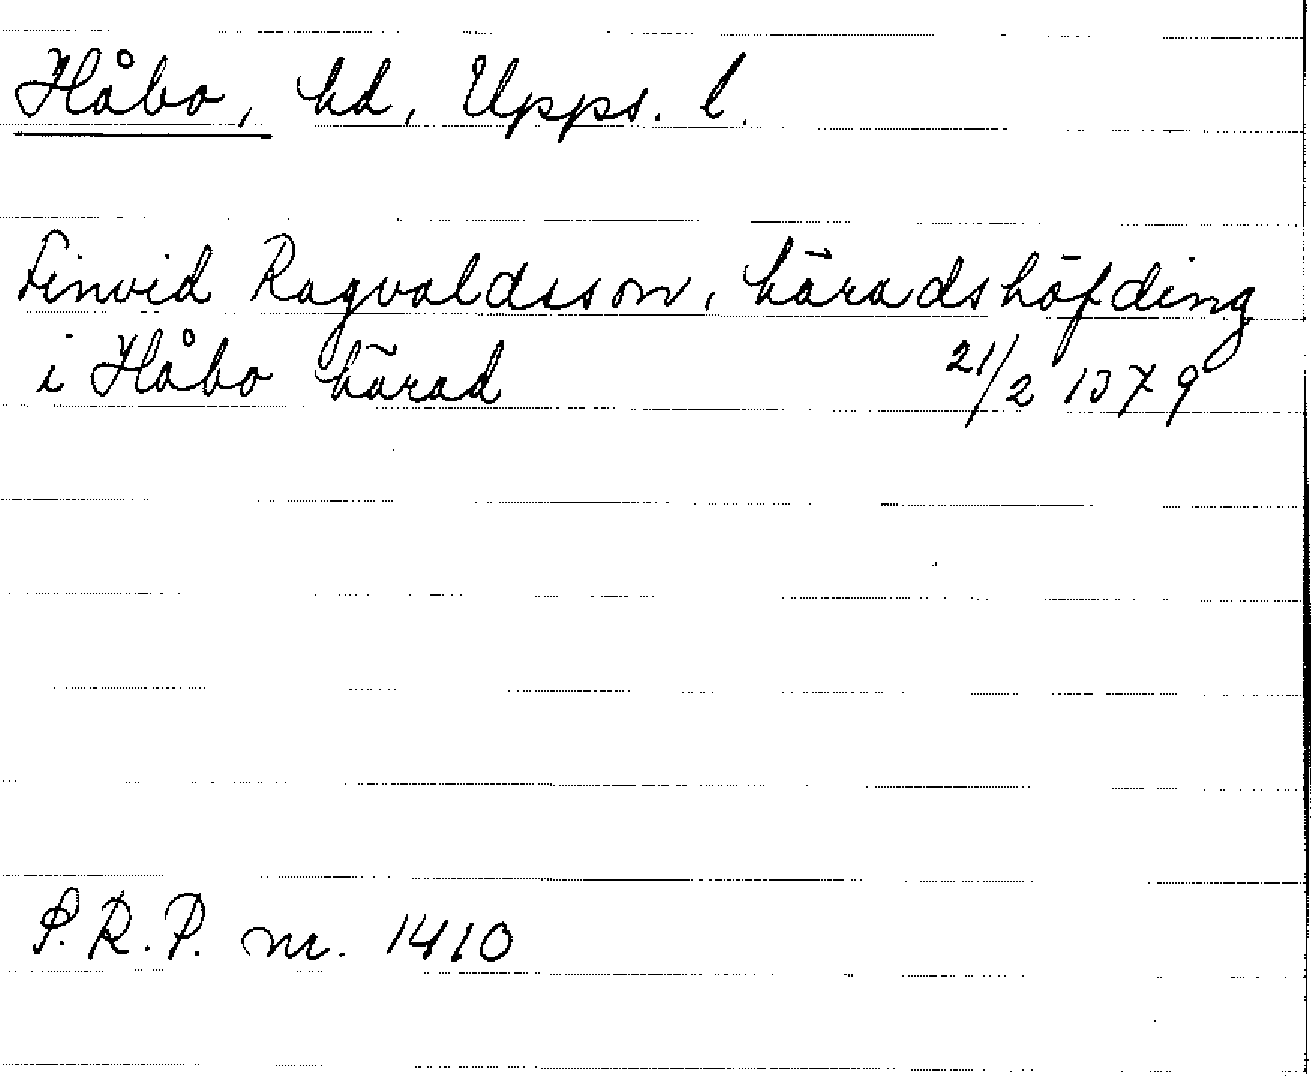 Håbo, hd, Upps. l.
Linvid Ragvaldsson, häradshöfding
i Håbo härad 21/2 1379
S.R.P. nr. 1410